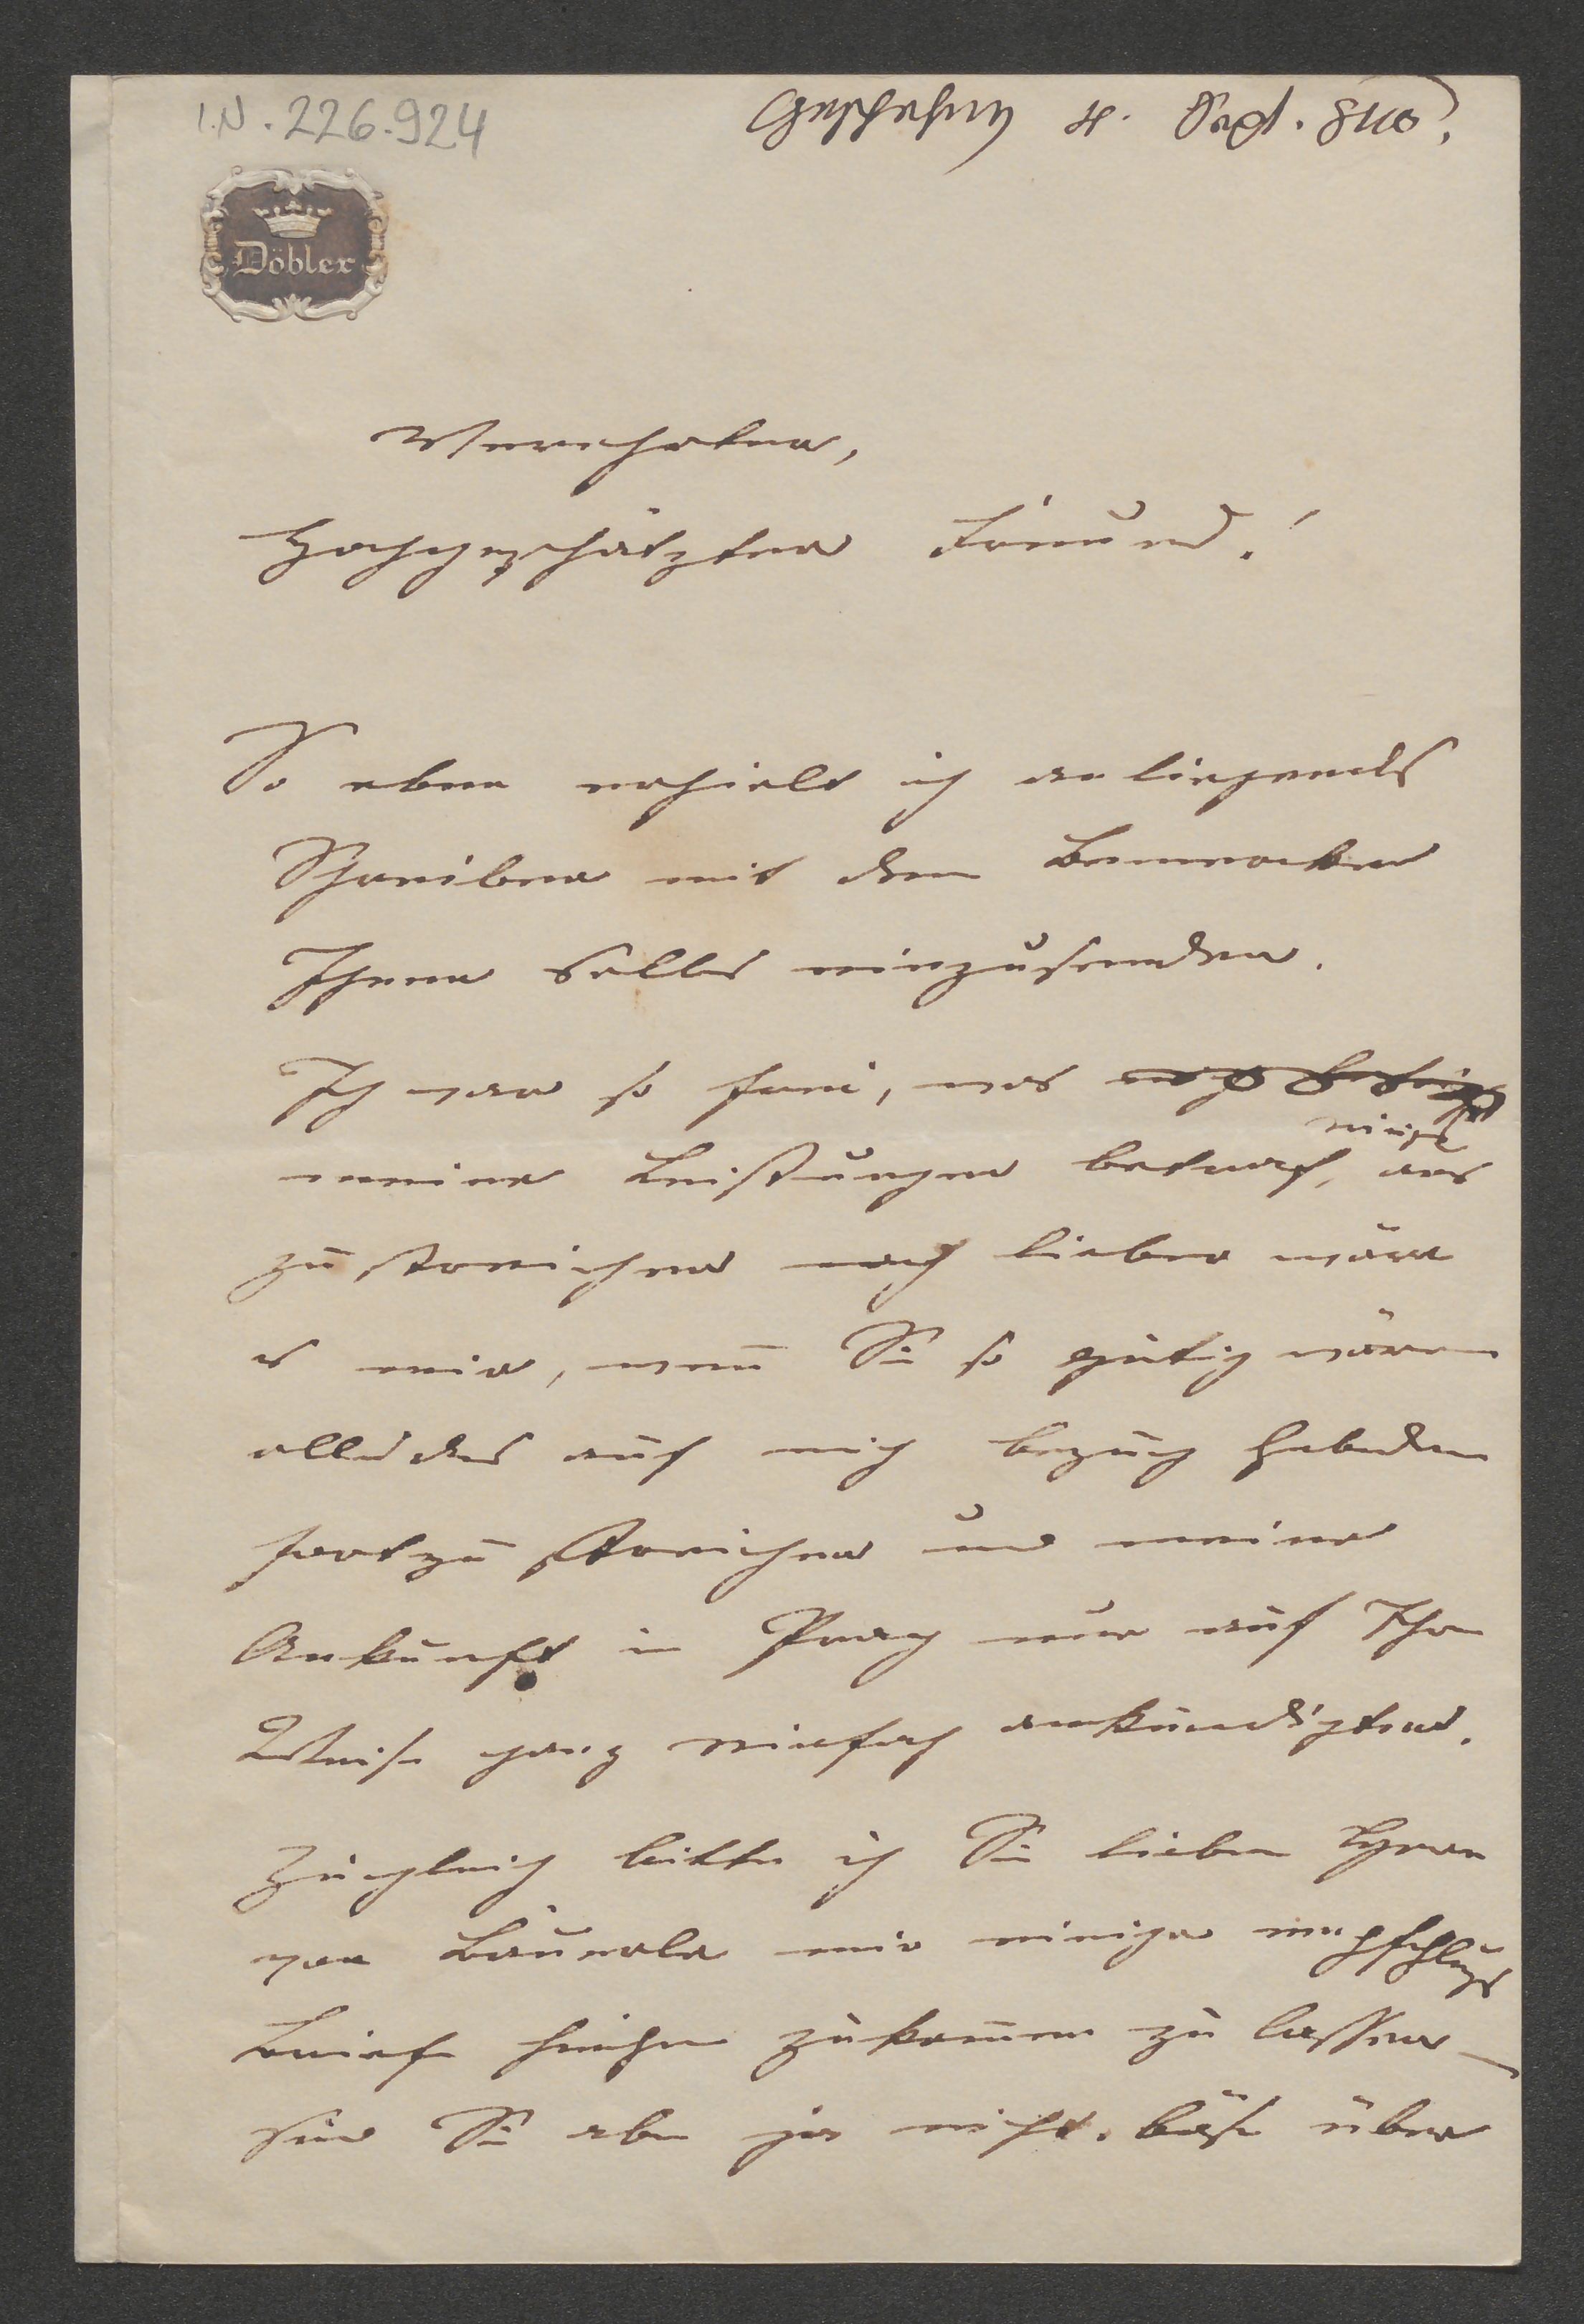 I.N. 226.924
Geschehen 4. Sept. 840.
Döbler
Verehrter,
Hochgeschätzter Freund!
So eben erhielt ich anliegendes
Schreiben mit dem Bemerken
Ihnen selbes einzusenden.
Ich war so frei, was
einiges
meine Leistungen betraf, aus
zu streichen noch lieber wäre
es mir, wenn Sie so gütig wären
alles das auf mich bezug habenden
fort zu streichen und meine
Ankunft in Prag nur auf Ihre
Weise ganz einfach ankündigten.
Zugleich bitte ich Sie lieber Herr
von Bäuerle mir einige empfehlungs
Briefe hieher zukommen zu lassen –
sind Sie aber ja nicht böse über